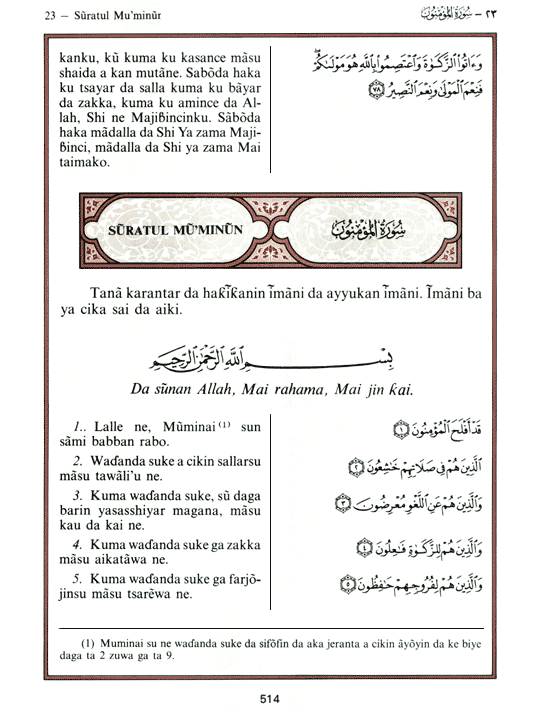 23 — Sũratul Mu'minũr
٢٣ — سُورَةُ المُؤْمِنُونَ
kanku, kũ kuma ku kasance mãsu
shaida a kan mutãne. Sabõda haka
ku tsayar da salla kuma ku bãyar
da zakka, kuma ku amince da Al-
lah, Shi ne Majiɓincinku. Sãbõda
haka mãdalla da Shi Ya zama Maji-
ɓinci, mãdalla da Shi ya zama Mai
taimako.
وَءَاتُوا۟ ٱلزَّكَوٰةَ وَٱعْتَصِمُوا۟ بِٱللَّهِ هُوَ مَوْلَىٰكُمْ ۖ
فَنِعْمَ ٱلْمَوْلَىٰ وَنِعْمَ ٱلنَّصِيرُ ﴿٧٨﴾
SŨRATUL MŨ'MINŨN
سُورَةُ المُؤْمِنُونَ
Tanã karantar da haƙĩƙanin ĩmãni da ayyukan ĩmãni. Ĩmãni ba
ya cika sai da aiki.
بِسْمِ ٱللَّهِ ٱلرَّحْمَٰنِ ٱلرَّحِيمِ
Da sũnan Allah, Mai rahama, Mai jin ƙai.
1.. Lalle ne, Mũminai (1) sun
sãmi babban rabo.
2. Waɗanda suke a cikin sallarsu
mãsu tawãli'u ne.
3. Kuma waɗanda suke, sũ daga
barin yasasshiyar magana, mãsu
kau da kai ne.
4. Kuma waɗanda suke ga zakka
mãsu aikatãwa ne.
5. Kuma waɗanda suke ga farjõ-
jinsu mãsu tsarẽwa ne.
قَدْ أَفْلَحَ ٱلْمُؤْمِنُونَ ﴿١﴾
ٱلَّذِينَ هُمْ فِى صَلَاتِهِمْ خَٰشِعُونَ ﴿٢﴾
وَٱلَّذِينَ هُمْ عَنِ ٱللَّغْوِ مُعْرِضُونَ ﴿٣﴾
وَٱلَّذِينَ هُمْ لِلزَّكَوٰةِ فَٰعِلُونَ ﴿٤﴾
وَٱلَّذِينَ هُمْ لِفُرُوجِهِمْ حَٰفِظُونَ ﴿٥﴾
(1) Muminai su ne waɗanda suke da sifõfin da aka jeranta a cikin ãyõyin da ke biye
daga ta 2 zuwa ga ta 9.
514